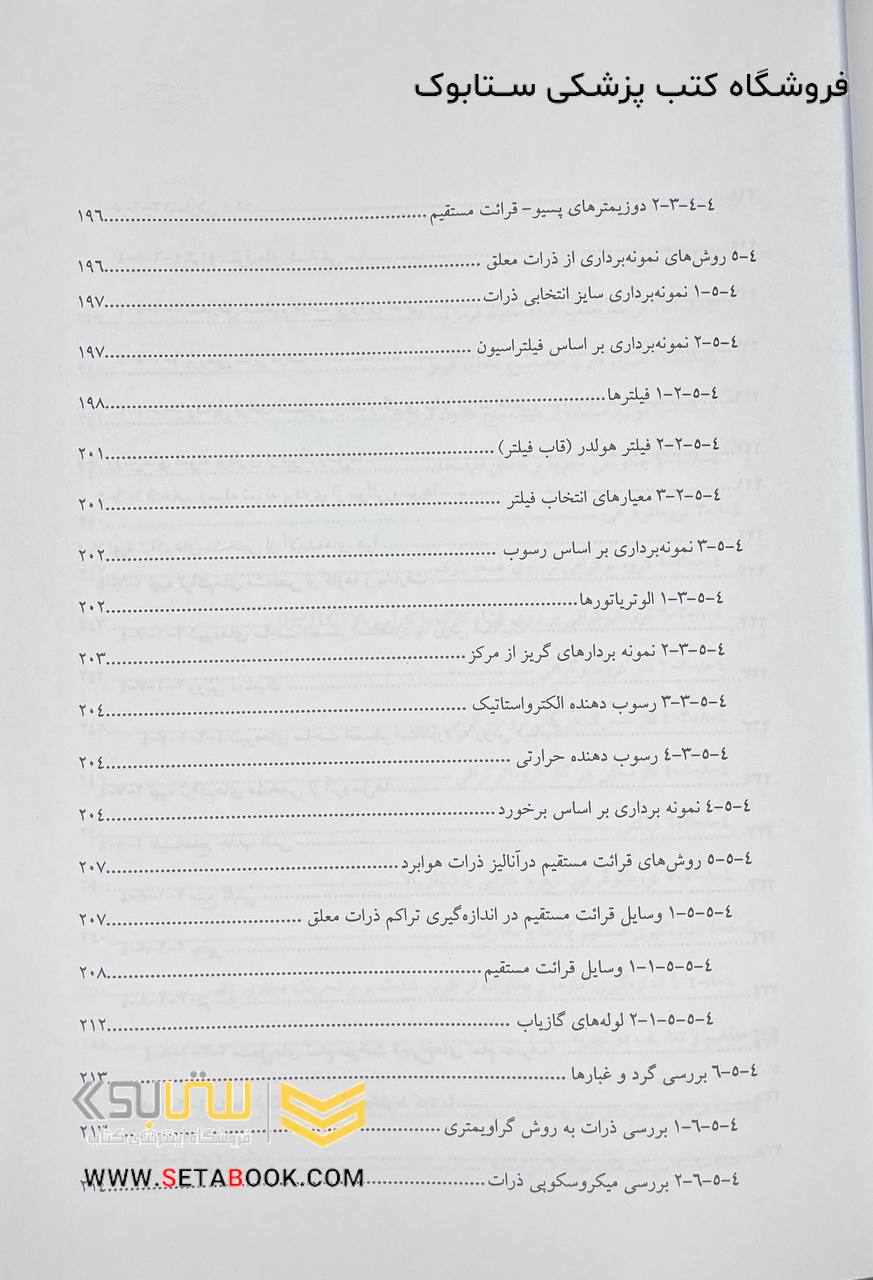 فروشگاه کتب پزشکی ستابوک
٤-٤-۳-۲ دوزیمترهای پسیو- قرائت مستقیم......۱۹٦
٤-٥ روش‌های نمونه‌برداری از ذرات معلق ......۱۹٦
٤-٥-۱ نمونه‌برداری سایز انتخابی ذرات......۱۹۷
٤-٥-۲ نمونه‌برداری بر اساس فیلتراسیون ......۱۹۷
٤-٥-۲-۱ فیلترها......۱۹۸
٤-٥-۲-۲ فیلتر هولدر (قاب فیلتر)......۲۰۱
٤-٥-۲-۳ معیارهای انتخاب فیلتر ......۲۰۱
٤-٥-۳ نمونه‌برداری بر اساس رسوب ......۲۰۲
٤-٥-۳-۱ الوتریاتورها......۲۰۲
٤-٥-۳-۲ نمونه بردارهای گریز از مرکز......۲۰۳
٤-٥-۳-۳ رسوب دهنده الکترواستاتیک ......۲۰٤
٤-٥-۳-٤ رسوب دهنده حرارتی ......۲۰٤
٤-٥-٤ نمونه برداری بر اساس برخورد......۲۰٤
٤-٥-٥ روش‌های قرائت مستقیم درآنالیز ذرات هوابرد......۲۰۷
٤-٥-٥-۱ وسایل قرائت مستقیم در اندازه‌گیری تراکم ذرات معلق ......۲۰۷
٤-٥-٥-۱-۱ وسایل قرائت مستقیم......۲۰۸
٤-٥-٥-۱-۲ لوله‌های گازیاب ......۲۱۲
٤-٥-٦ بررسی گرد و غبارها ......۲۱۳
٤-٥-٦-۱ بررسی ذرات به روش گراویمتری......۲۱۳
٤-٥-٦-۲ بررسی میکروسکوپی ذرات......۲۱٤
ستابوک
فروشگاه اینترنتی کتاب
WWW.SETABOOK.COM